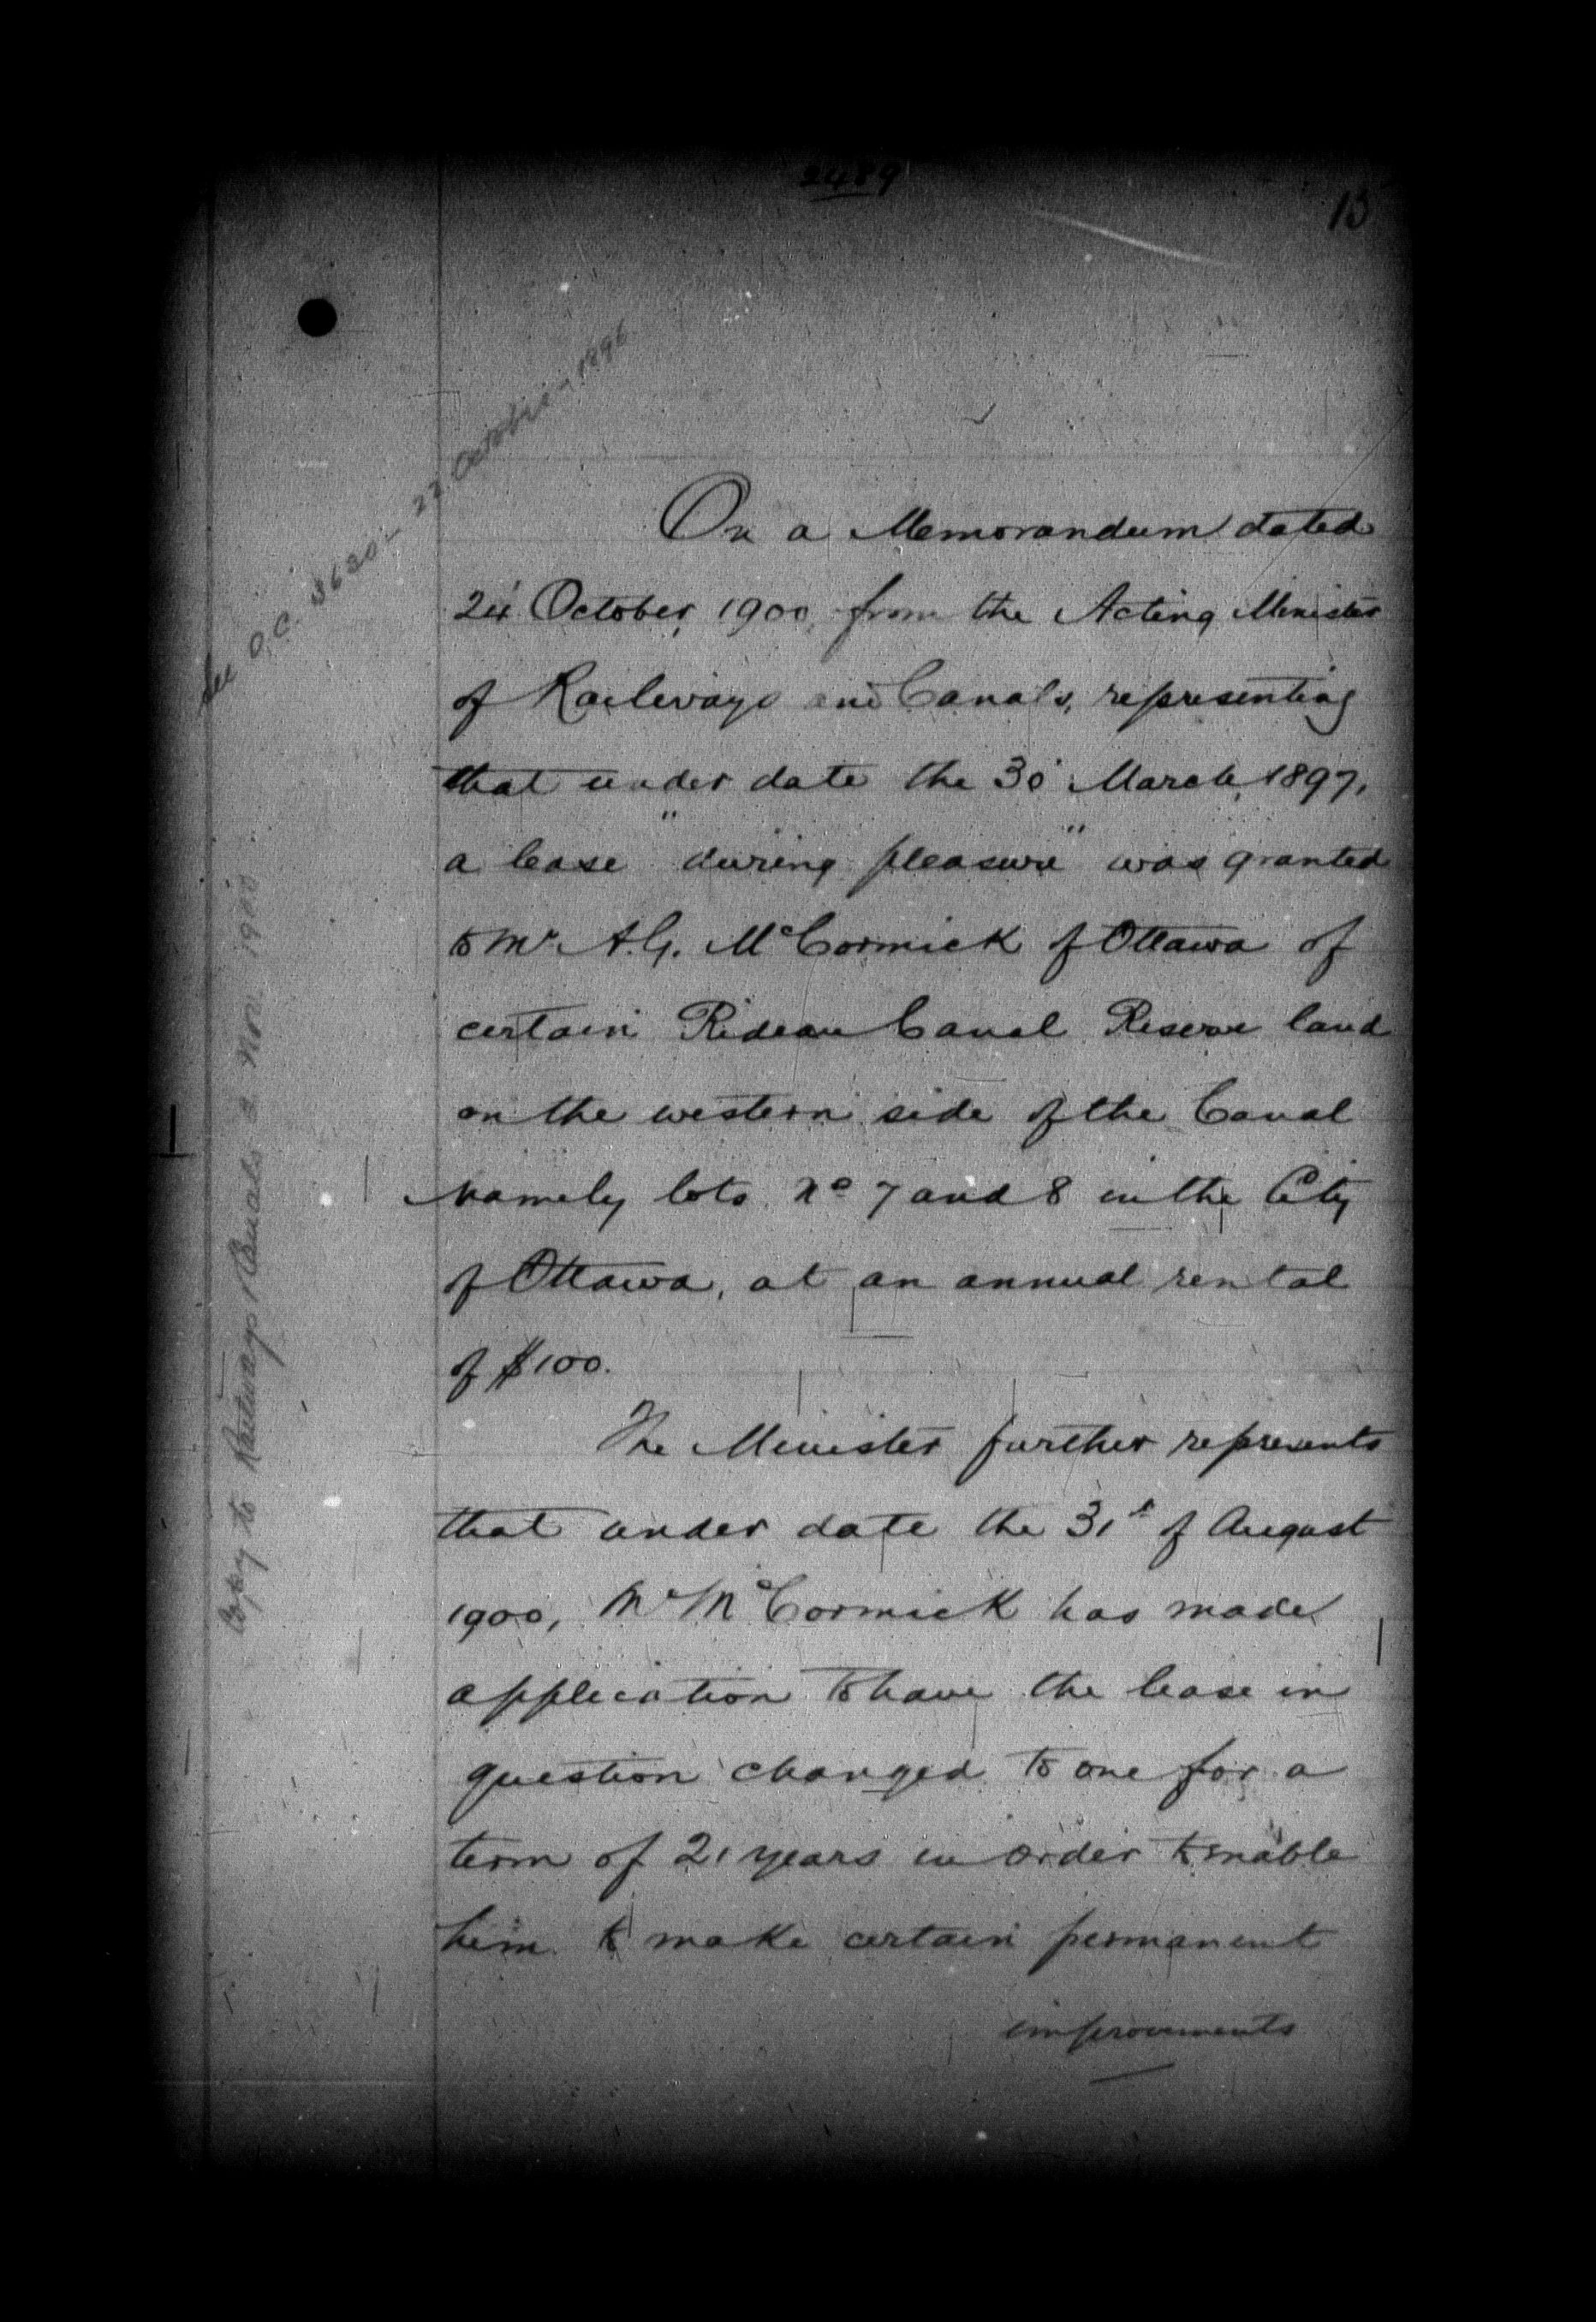 2489
15
See O.C. 3630 - 22 October - 1896
On a Memorandum dated
24' October, 1900, from the Acting Minister
of Railways and Canals, representing
that under date the 30' March, 1897,
a lease "during pleasure" was granted
to Mr A.G. McCormick of Ottawa of
certain Rideau Canal Reserve land
on the western side of the Canal
namely lots No 7 and 8 in the City
of Ottawa, at an annual rental
of $100.
The Minister further represents
that under date the 31st of August
1900, Mr McCormick has made
application to have the lease in
question changed to one for a
term of 21 years in order to enable
him to make certain permanent
improvements
Copy to Railways & Canals 2 Nov. 1900